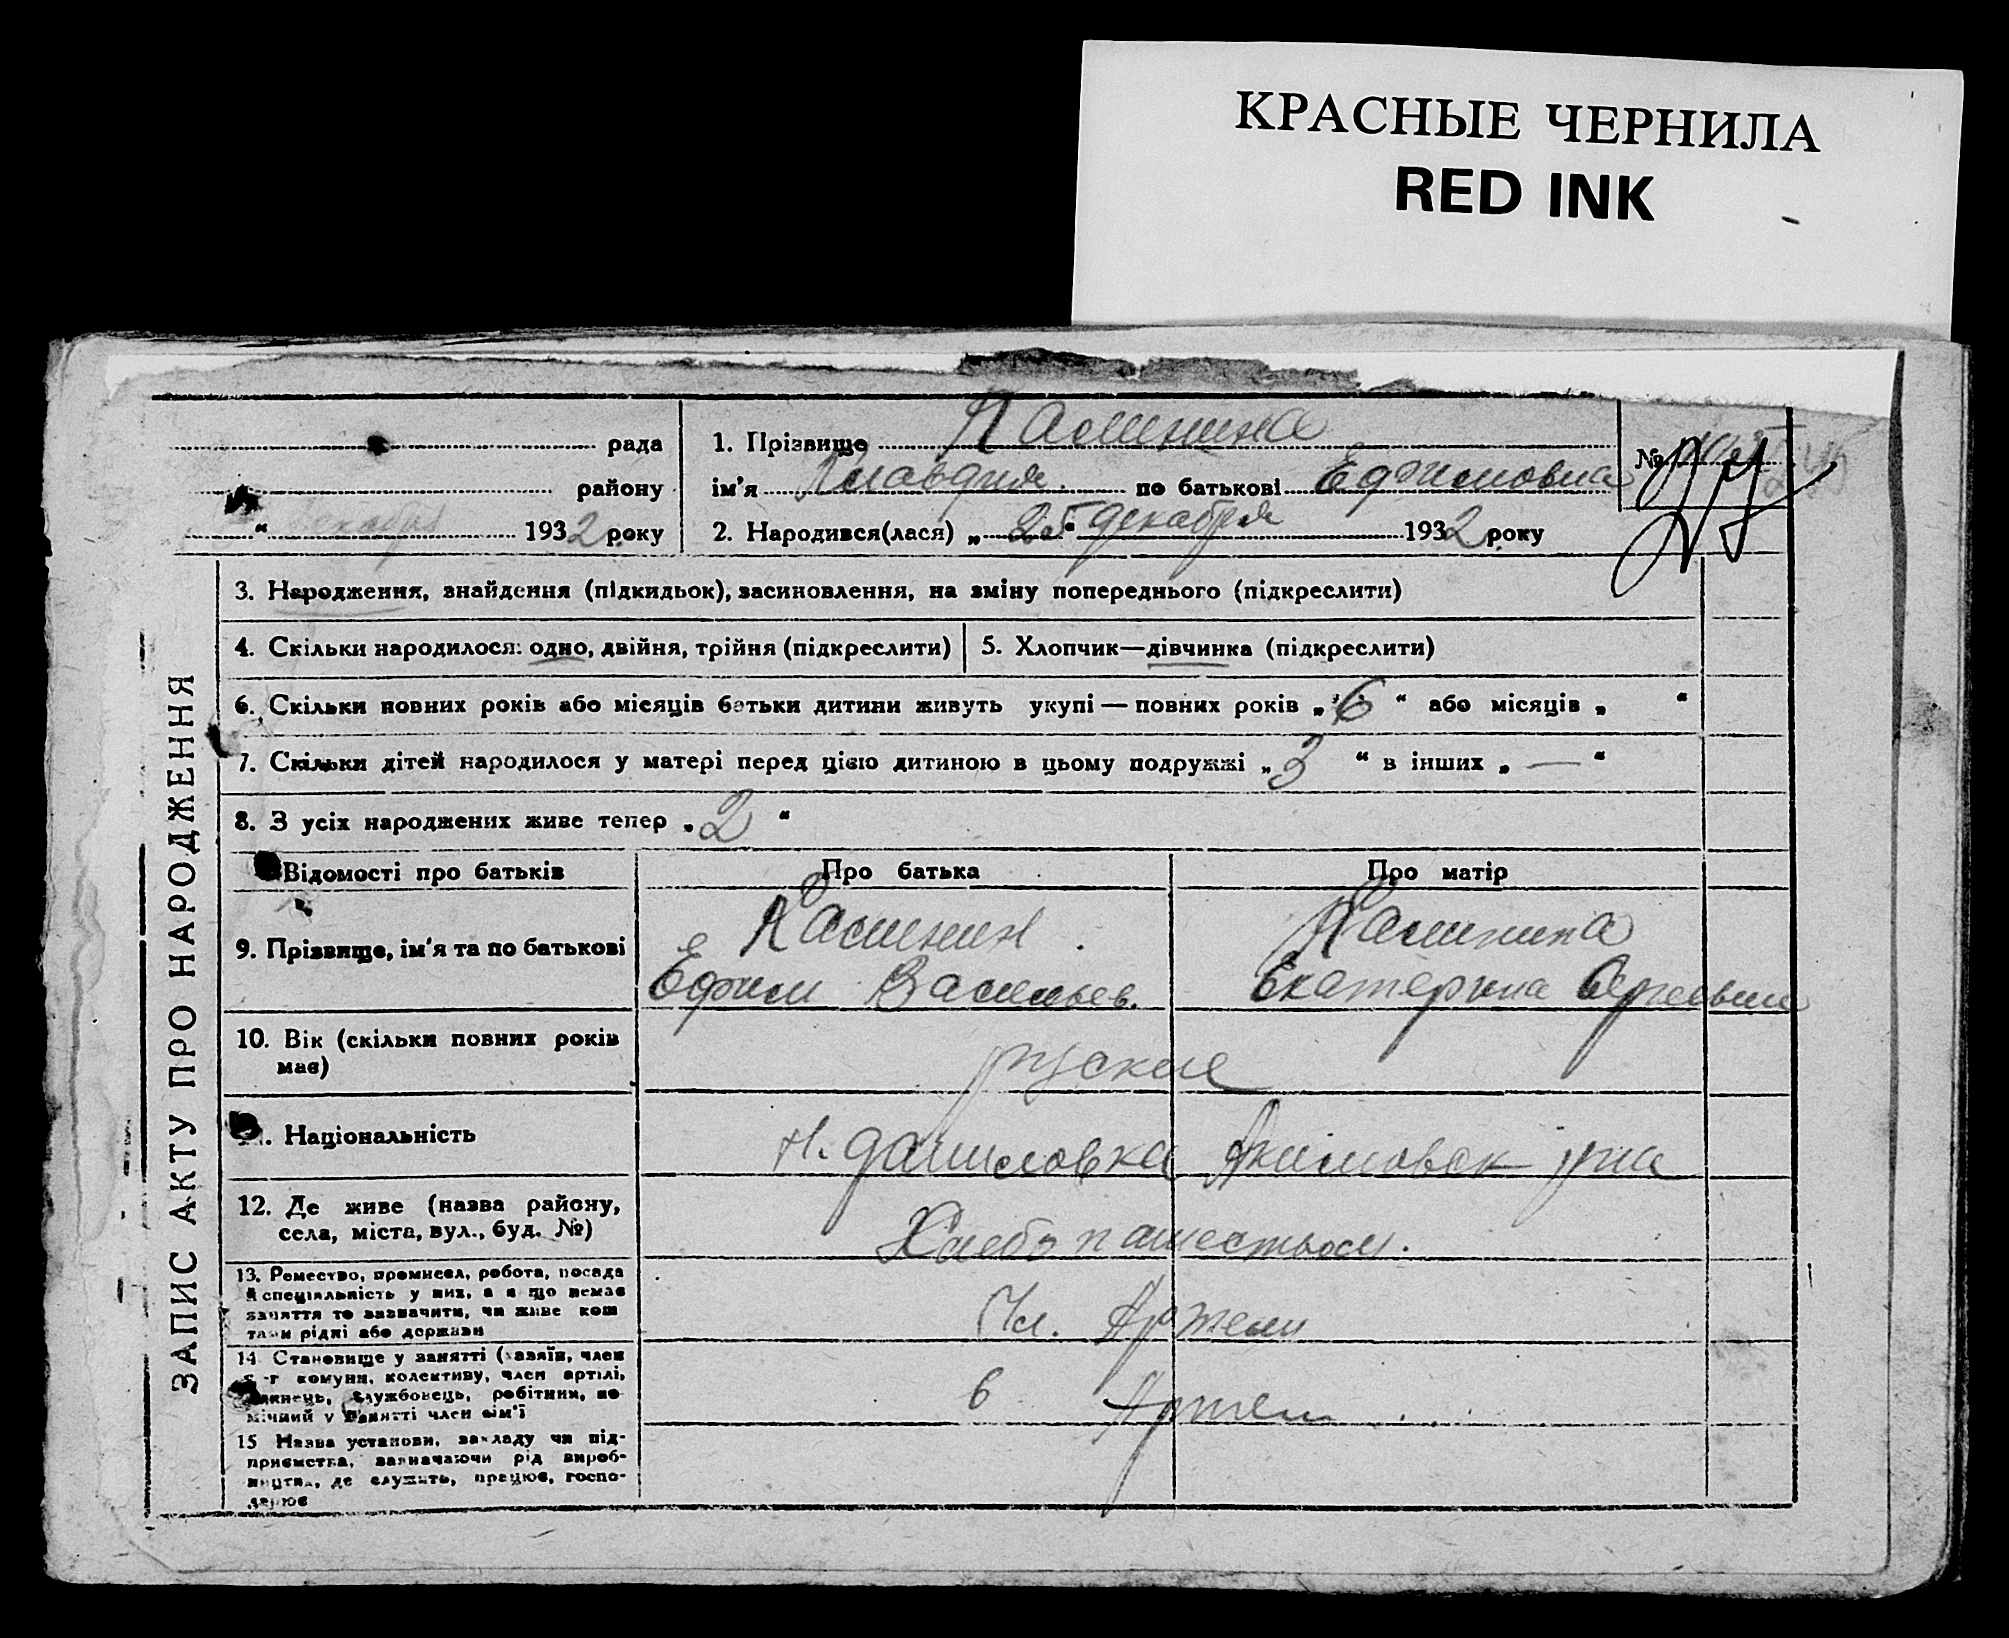 КРАСНЫЕ ЧЕРНИЛА
RED INK
рада
району
“ декабря 1932 року
1. Прізвище Калинина
ім'я Клавдия по батькові Ефимовна
2. Народився(лася) „ 25 “ декабря 1932 року
№
ЗАПИС АКТУ ПРО НАРОДЖЕННЯ
3. Народження, знайдення (підкидьок), засиновлення, на зміну попереднього (підкреслити)
4. Скільки народилося: одно, двійня, трійня (підкреслити)
5. Хлопчик—дівчинка (підкреслити)
6. Скільки повних років або місяців батьки дитини живуть укупі — повних років „ 6 “ або місяців „ “
7. Скільки дітей народилося у матері перед цією дитиною в цьому подружжі „ 3 “ в інших „ — “
8. З усіх народжених живе тепер „ 2 “
Відомості про батьків
Про батька
Про матір
9. Прізвище, ім'я та по батькові
Калинин
Ефим Васильев.
Калинина
Екатерина Сергеевна
10. Вік (скільки повних років має)
руские
11. Національність
Н. Даниловка Акимовск р-на
12. Де живе (назва району,
села, міста, вул., буд. №)
Хлебопашеством.
13. Ремество, промисел, робота, посада
й спеціяльність у них, а я що немає
заняття то зазначити, чи живе кош
тами рідні або держави
Чл. Артели
14. Становище у занятті (хазяїн, член
с.-г комуни, колективу, член артілі,
службовець, робітник, по-
мічний у занятті член сім'ї
в Артели
15 Назва установи, закладу чи під-
приємства, зазначаючи рід вироб-
ництва, де служить, працює, госпо-
дарює